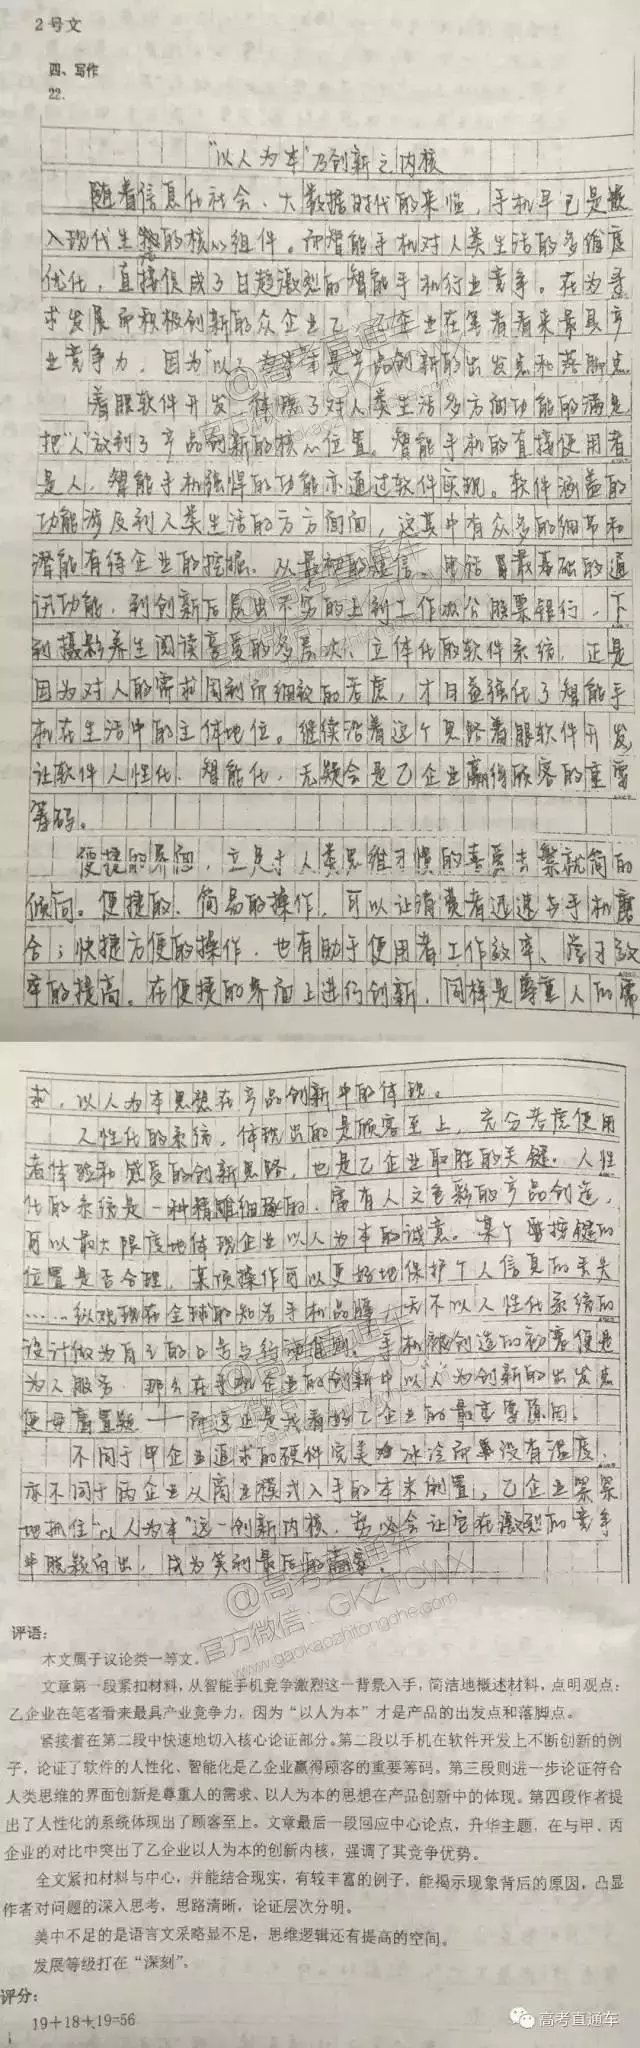 2号文
四、写作
22.
“以人为本”乃创新之内核
随着信息化社会、大数据时代的来临，手机早已是被
入现代生活的核心组件。而智能手机对人类生活的多维度
优化，直接促成了日趋激烈的智能手机行业竞争。在为寻
求发展而积极创新的众企业中，乙企业在笔者看来最具产
业竞争力，因为“以人为本”才是产品创新的出发点和落脚点
着眼软件开发，体现了对人类生活多方面功能的满足，
把“人”放到了产品创新的核心位置。智能手机的直接使用者
是人，智能手机强悍的功能亦通过软件实现。软件涵盖的
功能涉及到人类生活的方方面面，这其中有众多的细节和
潜能有待企业的挖掘。从最初的短信、电话等最基础的通
讯功能，到创新后层出不穷的上到工作办公股票银行，下
到摄影养生阅读喜爱的多层次、立体化的软件系统，正是
因为对人的需求周到而细致的考虑，才日益强化了智能手
机在生活中的主体地位。继续沿着这个思路着眼软件开发
让软件人性化、智能化，无疑会是乙企业赢得顾客的重要
筹码。
便捷的界面，立足于人类思维习惯的喜爱去繁就简的
倾向。便捷的、简易的操作，可以让消费者迅速与手机磨
合；快捷方便的操作，也有助于使用者工作效率、学习效
率的提高。在便捷的界面上进行创新，同样是尊重人的需
求，以人为本思想在产品创新中的体现。
人性化的系统，体现出的是顾客至上，充分考虑使用
者体验和感受的创新思路，也是乙企业取胜的关键。人性
化的系统是一种精雕细琢的、富有人文色彩的产品创造，
可以最大限度地体现企业以人为本的诚意。某个按键的
位置是否合理，某项操作可以更好地保护个人信息的丢失
……纵观现在全球的知名手机品牌，无不以人性化系统的
设计做为自己的口号与行动准则。手机被创造的初衷便是
为人服务，那么在手机企业的创新中以“人”为创新的出发点
便毋庸置疑——而这正是我看好乙企业的最重要原因。
不同于甲企业追求的硬件完美如冰冷而毕没有温度，
亦不同于丙企业从商业模式入手的本末倒置，乙企业牢牢
地抓住“以人为本”这一创新内核，势必会让它在激烈的竞争
中脱颖而出，成为笑到最后的赢家。
评语：
本文属于议论类一等文。
文章第一段紧扣材料，从智能手机竞争激烈这一背景入手，简洁地概述材料，点明观点：
乙企业在笔者看来最具产业竞争力，因为“以人为本”才是产品的出发点和落脚点。
紧接着在第二段中快速地切入核心论证部分。第二段以手机在软件开发上不断创新的例
子，论证了软件的人性化、智能化是乙企业赢得顾客的重要筹码。第三段则进一步论证符合
人类思维的界面创新是尊重人的需求、以人为本的思想在产品创新中的体现。第四段作者提
出了人性化的系统体现出了顾客至上。文章最后一段回应中心论点，升华主题，在与甲、丙
企业的对比中突出了乙企业以人为本的创新内核，强调了其竞争优势。
全文紧扣材料与中心，并能结合现实，有较丰富的例子，能揭示现象背后的原因，凸显
作者对问题的深入思考，思路清晰，论证层次分明。
美中不足的是语言文采略显不足，思维逻辑还有提高的空间。
发展等级打在“深刻”。
评分：
19+18+19=56
高考直通车
@高考直通车
官方微信：GKZTCWX
www.gaokaozhitongche.com